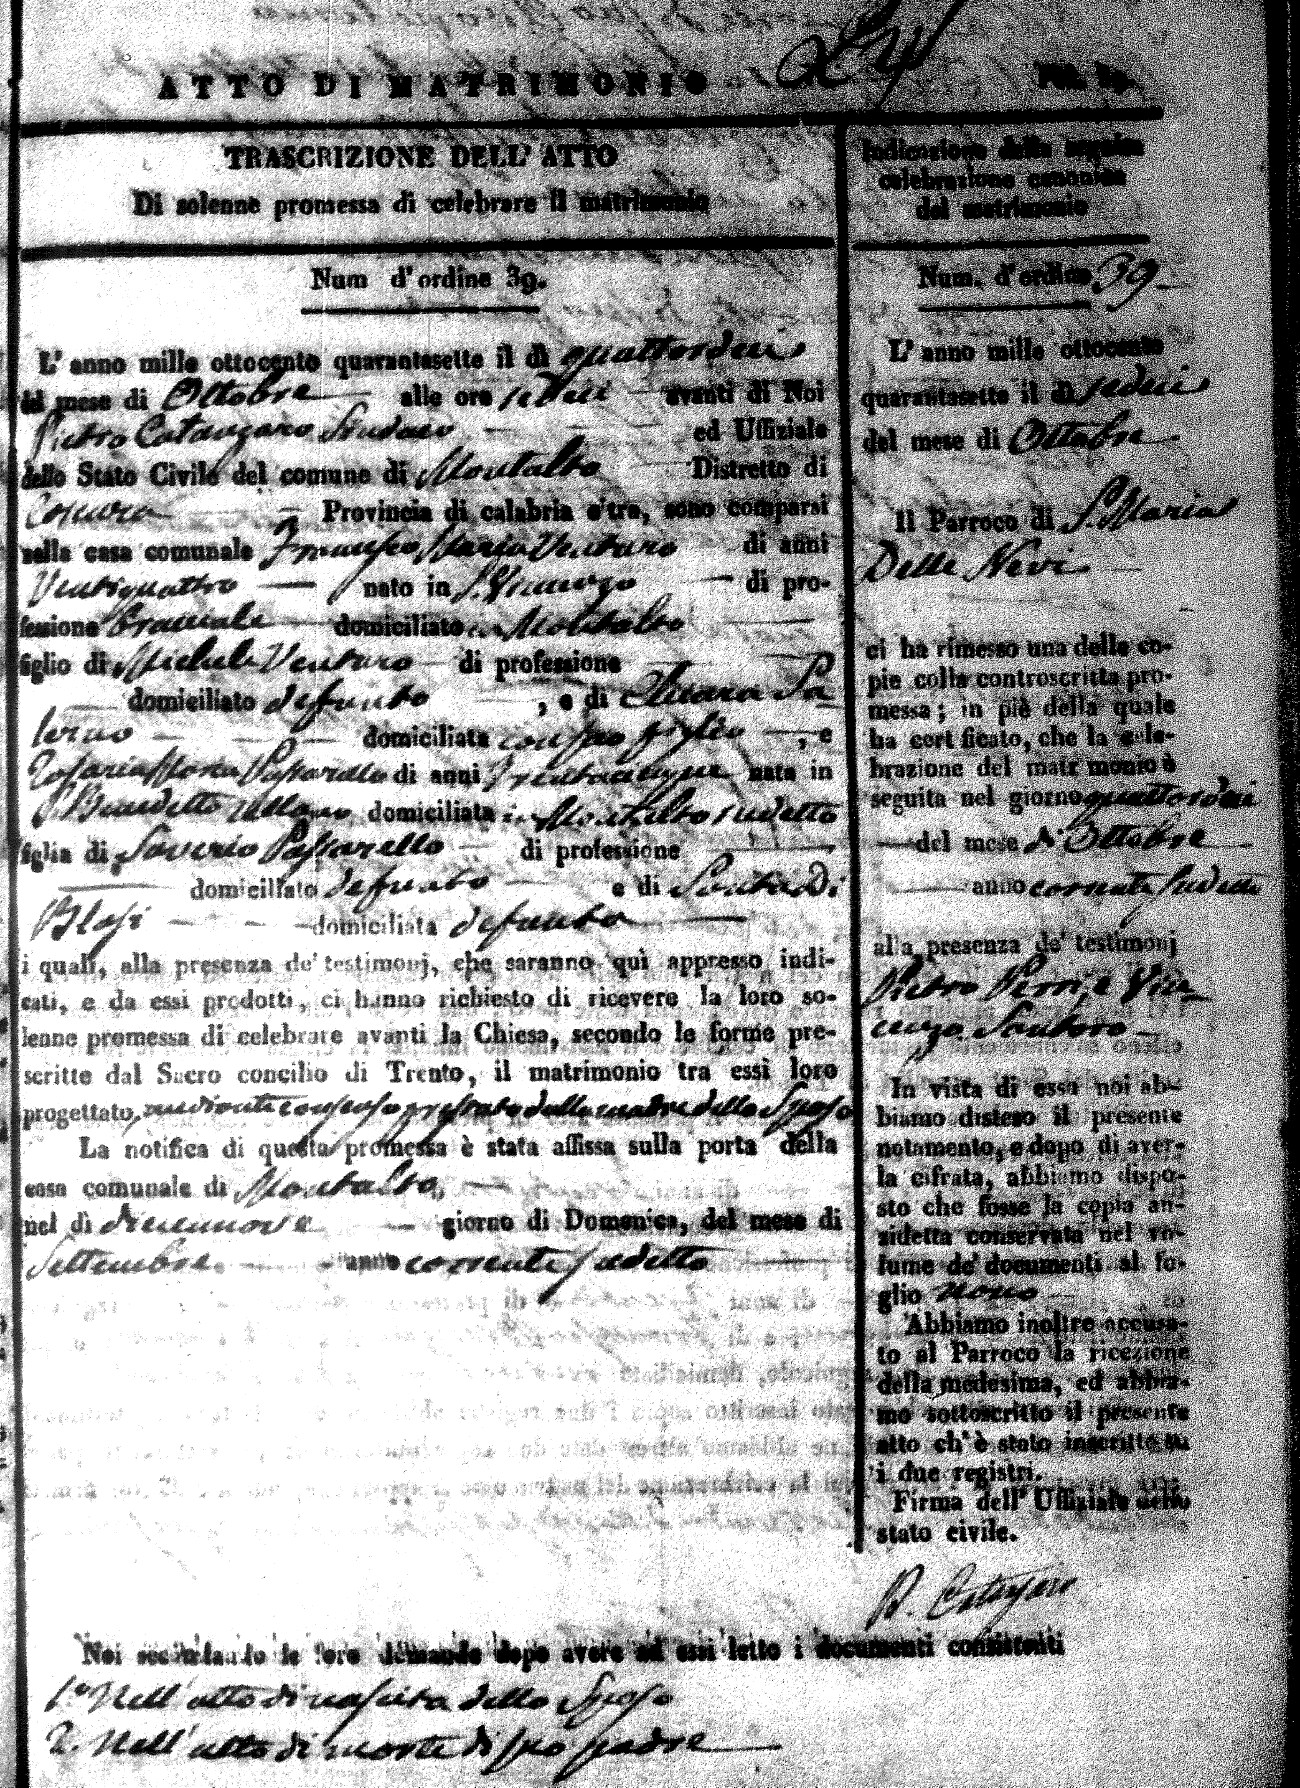 ATTO DI MATRIMONIO
TRASCRIZIONE DELL' ATTO
Di solenne promessa di celebrare il matrimonio
Num d'ordine 39.
L' anno mille ottocento quarantasette il dì quattordici
del mese di Ottobre alle ore sedici avanti di Noi
Pietro Catanzaro Sindaco ed Uffiziale
dello Stato Civile del comune di Montalto Distretto di
Cosenza Provincia di calabria citra, sono comparsi
nella casa comunale Francesco Maria Venturo di anni
Ventiquattro nato in S. Vincenzo di pro-
fessione Bracciale domiciliato in Montalto
figlio di Michele Venturo di professione
domiciliato defunto , e di Chiara Pa
lermo domiciliata con suo figlio , e
Rosaria Maria Passarello di anni nata in
S. Benedetto Ullano domiciliata in Montalto sudetto
figlia di Saverio Passarello di professione
domiciliato defunto e di Santa Di
Blasi domiciliata defunta
i quali, alla presenza de' testimonj, che saranno quì appresso indi-
cati, e da essi prodotti, ci hanno richiesto di ricevere la loro so-
lenne promessa di celebrare avanti la Chiesa, secondo le forme pre-
scritte dal Sacro concilio di Trento, il matrimonio tra essi loro
progettato, mediante consenso prestato dalla madre dello Sposo
La notifica di questa promessa è stata affissa sulla porta della
casa comunale di Montalto,
nel dì diecinnove giorno di Domenica, del mese di
Settembre anno corrente sudetto
Indicazione della seguita
celebrazione canonica
del matrimonio
Num. d'ordine 39
L' anno mille ottocento
quarantasette il dì sedici
del mese di Ottobre
Il Parroco di S. Maria
Delle Nevi
ci ha rimesso una delle co-
pie colla controscritta pro-
messa; in piè della quale
ha certificato, che la cele-
brazione del matrimonio è
seguita nel giorno quattordici
del mese d'Ottobre
anno corrente sudetto
alla presenza de' testimonj
Pietro Perri, e Vin
cenzo Santoro
In vista di essa noi ab-
biamo disteso il presente
notamento, e dopo di aver-
la cifrata, abbiamo dispo-
sto che fosse la copia an-
zidetta conservata nel vo-
lume de' documenti al fo-
glio nono
Abbiamo inoltre accusa-
to al Parroco la ricezione
della medesima, ed abbia-
mo sottoscritto il presente
atto ch' è stato inscritto su
i due registri.
Firma dell' Uffiziale dello
stato civile.
P. Catanzaro
Noi secondando le loro dimande dopo avere ad essi letto i documenti consistenti
1.° Nell' atto di nascita dello Sposo
2. Nell' atto di morte di suo padre